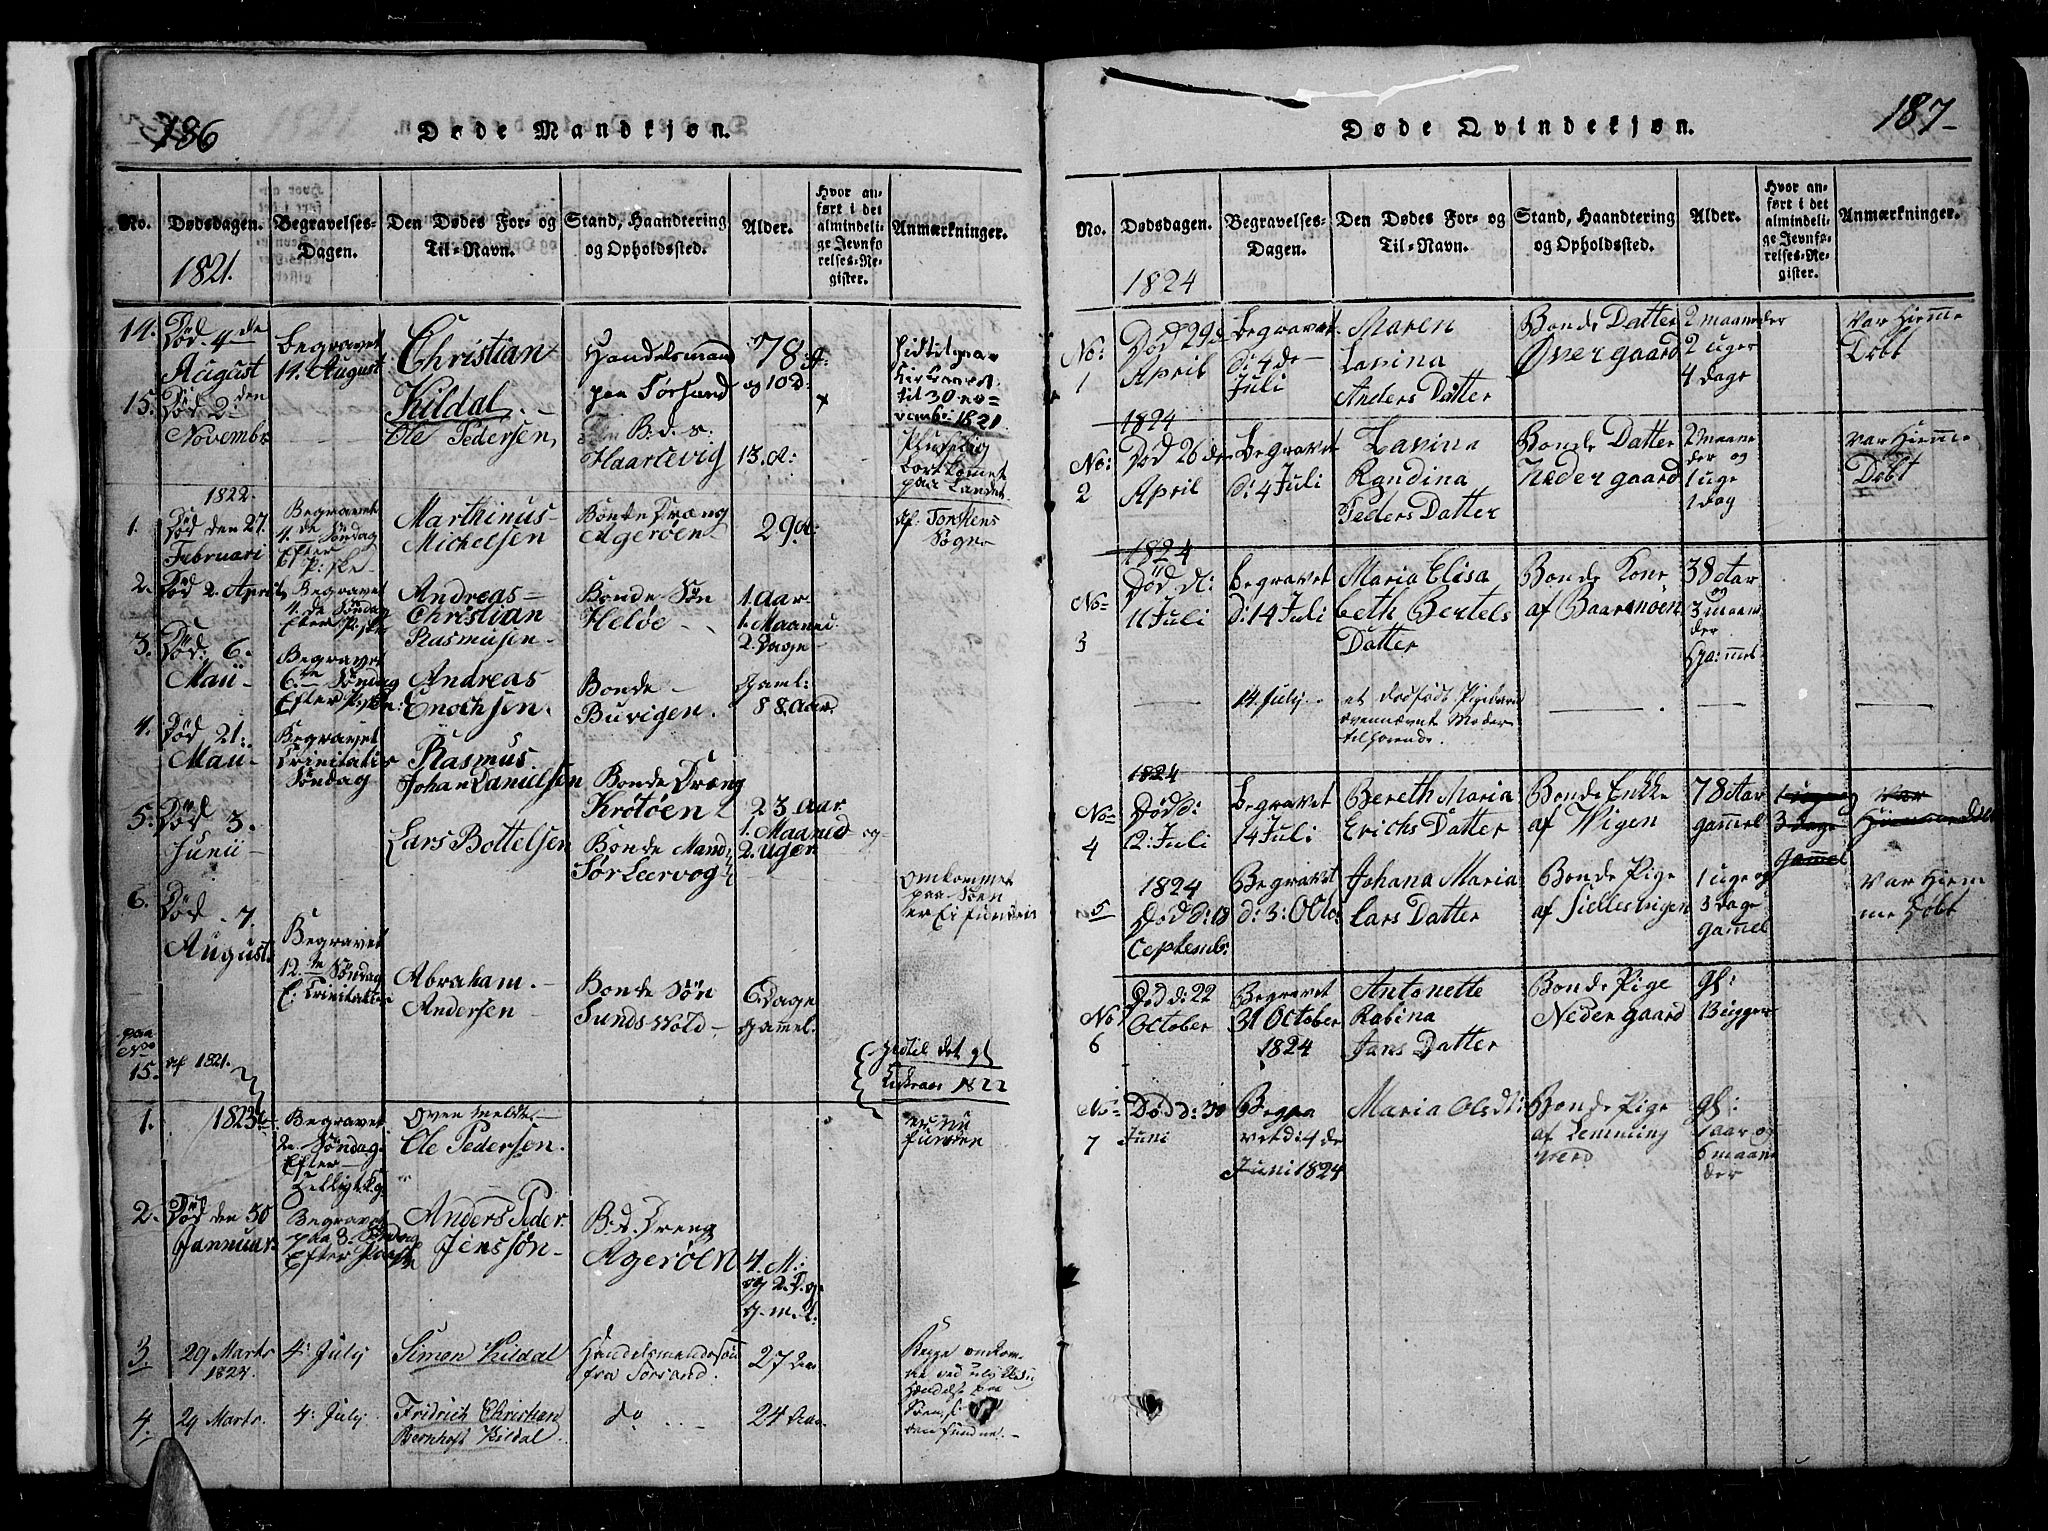 186
Døde Mandkjøn.
No.
Dødsdagen.
1821.
Begravelses-
Dagen.
Den Dødes For- og
Til-Navn.
Stand, Haandtering
og Opholdssted.
Alder.
Hvor an-
ført i det
almindeli-
ge Jevnfø-
relses-Re-
gister.
Anmærkninger.
14.
Død 4de
August
Begravet
14. August
Christian
Kildal
Handelsmand
paa Sørsund
78
og 10 d.
til 30 no-
vemb: 1821
15.
Død 2den
Novembr
Ole Pedersen
Haartevig
13. A:
1822.
1.
Død den 27.
Februari
Begravet
4. de Søndag
Efter
P:ske
Marthinus
Michelsen
Bonde Dræng
Agerøen
29 A:
af: Torskens
Sogn
2.
Død 2. April
Begravet
4. de Søndag
Efter P:ske
Andreas
Christian
Rasmusen
Bonde Søn
Heløe
1. Aar
1. Maaned
2. Dage
3.
Død: 6.
Maii
Begravet
6. te Søndag
Efter P:ske
Andreas
Enochsen.
Bonde
Buvigen.
Gaml:
88. Aar.
4.
Død 21:
Maii
Begravet
Trinitatis
Søndag
Rasmus
Johan Danielsen
Bonde Dræng
Krøtøen
23. Aar
1. Maaned og
2. Uger
5.
Død 3.
Junii
Lars Bottelsen
Bonde Mand
Sør Leervog
Omkommet
paa Søen
er Ei funden
6.
Død 7.
August
Begravet
12. te Søndag
E: Trinitatis
Abraham.
Andersen
Bonde Søn
Sunds-Vold
6. Dage
gammel.
paa
No
15. af 1821.
1822
1.
1823.
Begravet
2. Søndag
Efter
Oven Meldte
Ole Pedersen.
er nu
funden
2.
Død den 30
Januar
Begravet
paa 3. Søndag
Efter Paaske
Anders Peder
Jenssøn
B.d. Dreng
Agerøen
4. M:
og 2. D. g.
3.
29 Marts
1824.
4: July
Simon Kildal
Handelsmandssøn
fra Sørsand.
27 Aar
4.
29 Marts.
4: July
Fridrich Christian
Bernhoft Kildal
do
24 Aar.
187
Døde Qvindekjøn.
No.
Dødsdagen.
1824
Begravelses-
Dagen.
Den Dødes For- og
Til-Navn.
Stand, Haandtering
og Opholdssted.
Alder.
Hvor an-
ført i det
almindeli-
ge Jevnfø-
relses-Re-
gister.
Anmærkninger.
No:
1
Død 29de
April
begravet
d: 4 de
Juli
Maren
Lavina
Anders Datter
Bonde Datter
Øvergaard
2 maaneder
2 uger
4 dage
Var Hiemme
Døbt
No:
2
1824
Død 26 de
April
begravet
d: 4 Juli
Lavina
Randina
Peders Datter
Bonde Datter
Nedergaard
2 maane
der og
1 uge
1 dag
Var Hiemme
Døbt
No
3
1824
Død d:
11 Juli
begravet
d: 14 Juli
Maria Elisa
beth Bertels
Datter
Bonde Kone
af Baarsnøen
38 Aar
og
3 maane
der
Gammel
14 July
et dødfødt Pigebarn
ovennævnt Moder
tilhørende.
No
4
1824
Død d:
12: Juli
begravet
14 Juli
Bereth Maria
Erichs Datter
Bonde Enkke
af Vigen
78 Aar
gammel
1 uge og
3 dage
gammel
Var
5
1824
Død d: 18
Septemb:
Begravet
d: 3: Octo
Johana Maria
Lars Datter
Bonde Pige
af Sillesvigen
1 uge og
3 dage
gamel
Var Hiem
me Døbt
No
6
Død d: 22
October
Begravet
31 October
1824
Antonette
Rabina
Jans Datter
Bonde Pige
Nedergaard
No
7
Død d: 30
Juni
Begra
vet d: 4 de
Juni 1824
Maria Olsdt:
Bonde Pige
af Lemming
værd
gl:
1 aar og
6 maane
der